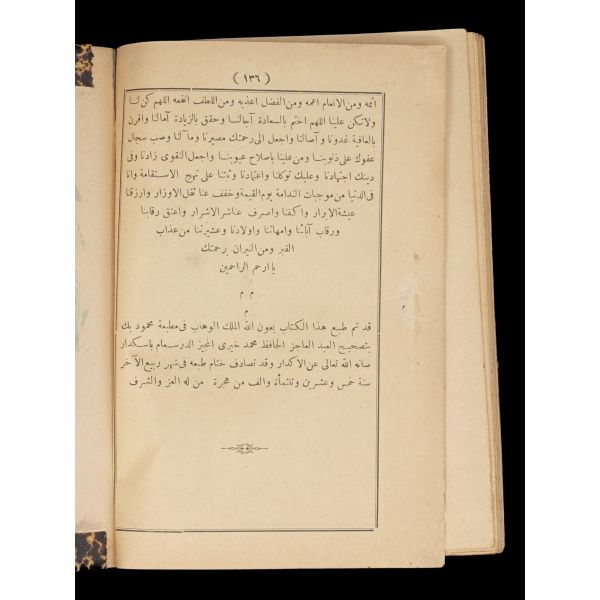 ( ١٣٦ )
اتمه ومن الانعام اعمه ومن الفضل اعذبه ومن اللطف انفعه اللهم كن لنا
ولاتكن علينا اللهم اختم بالسعادة آجالنا وحقق بالزيادة آمالنا واقرن
بالعافية غدونا وآصالنا واجعل الى رحمتك مصيرنا ومآلنا وصب سجال
عفوك على ذنوبنا ومن علينا باصلاح عيوبنا واجعل التقوى زادنا وفى
دينك اجتهادنا وعليك توكلنا واعتمادنا وثبتنا على نهج الاستقامة واعذنا
فى الدنيا من موجبات الندامة يوم القيمة وخفف عنا ثقل الاوزار وارزقنا
عيشة الابرار واكفنا واصرف عنا شر الاشرار واعتق رقابنا
ورقاب آبائنا وامهاتنا واولادنا وعشيرتنا من عذاب
القبر ومن النيران برحمتك
يا ارحم الراحمين
م م
م
قد تم طبع هذا الكتاب بعون الله الملك الوهاب فى مطبعة محمود بك
بتصحيح العبد العاجز الحافظ محمد خيرى المجيز الدرسعام باسكدار
صانه الله تعالى عن الاكدار وقد تصادف ختام طبعه فى شهر ربيع الآخر
سنة خمس وعشرين وثلثمأة والف من هجرة من له العز والشرف